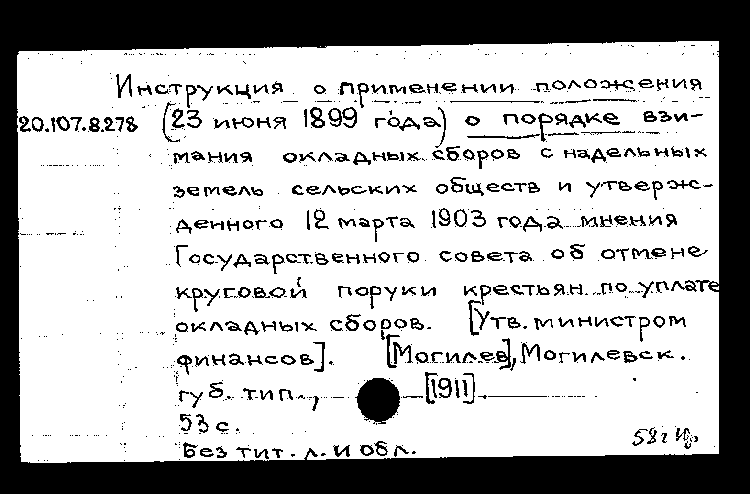 Инструкция о применении положения
20.107.8.278 (23 июня 1899 года) о порядке взи-
мания окладных сборов с надельных
земель сельских обществ и утверж-
денного 12 марта 1903 года мнения
Государственного совета об отмене
круговой поруки крестьян по уплате
окладных сборов. [Утв. министром
финансов]. [Могилев], Могилевск.
губ. тип., [1911].
53 с.
Без тит. л. и обл.